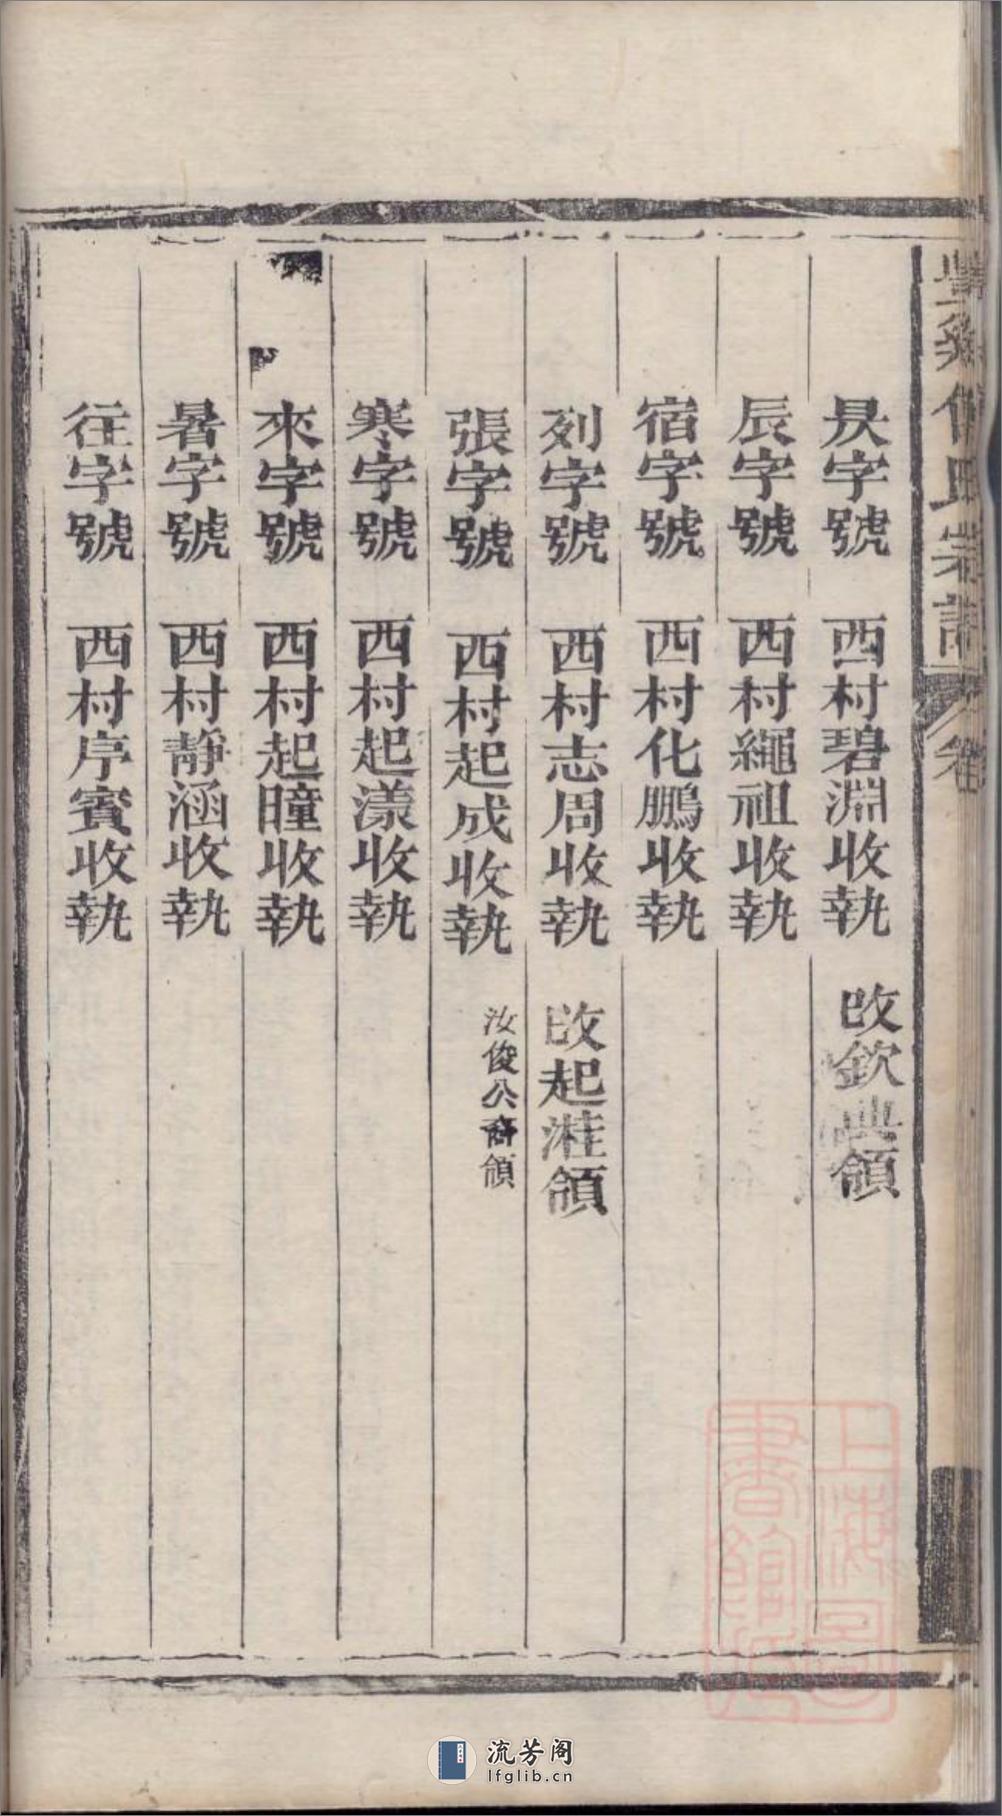 昃字號　西村碧淵收執　改欽典領
辰字號　西村繩祖收執
宿字號　西村化鵬收執
列字號　西村志周收執　改起溎領
張字號　西村起成收執　汝俊公裔領
寒字號　西村起漾收執
來字號　西村起曈收執
暑字號　西村靜涵收執
往字號　西村序賓收執
氏宗譜
卷
上海圖書館藏
流芳阁
lfglib.cn